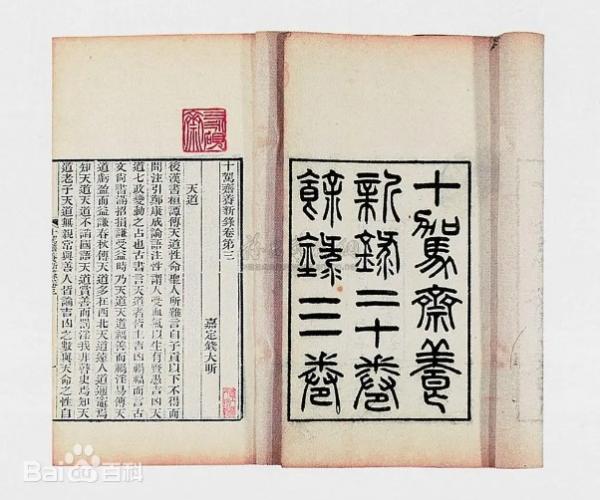 十駕齋養
新錄二十卷
餘錄三卷
十駕齋養新錄卷第三
嘉定錢大昕
天道
後漢書桓譚傳天道性命聖人所難言自子貢以下不得而
聞注引鄭康成論語注性謂人受血氣以生有賢愚吉凶天
道七政變動之占也古書言天道者皆主吉凶禍福而言古
文尚書滿招損謙受益時乃天道天道福善禍淫易傳天
道虧盈而益謙春秋傳天道多在西北天道遠人道邇竈焉
知天道天道不謟國語天道賞善而罰淫我非瞽史焉知天
道老子天道無親常與善人皆論吉凶之數與天命之性自
Bai百科